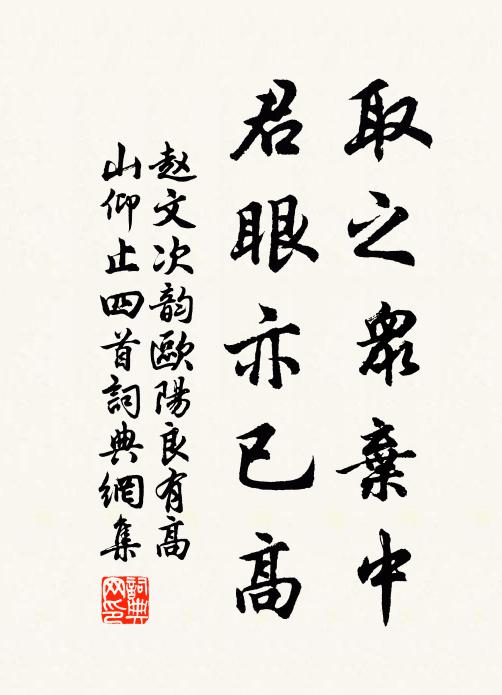 取之衆棄中
君眼亦已高
赵文次韵歐陽良有高
山仰止四首詞典網集
詞典网印